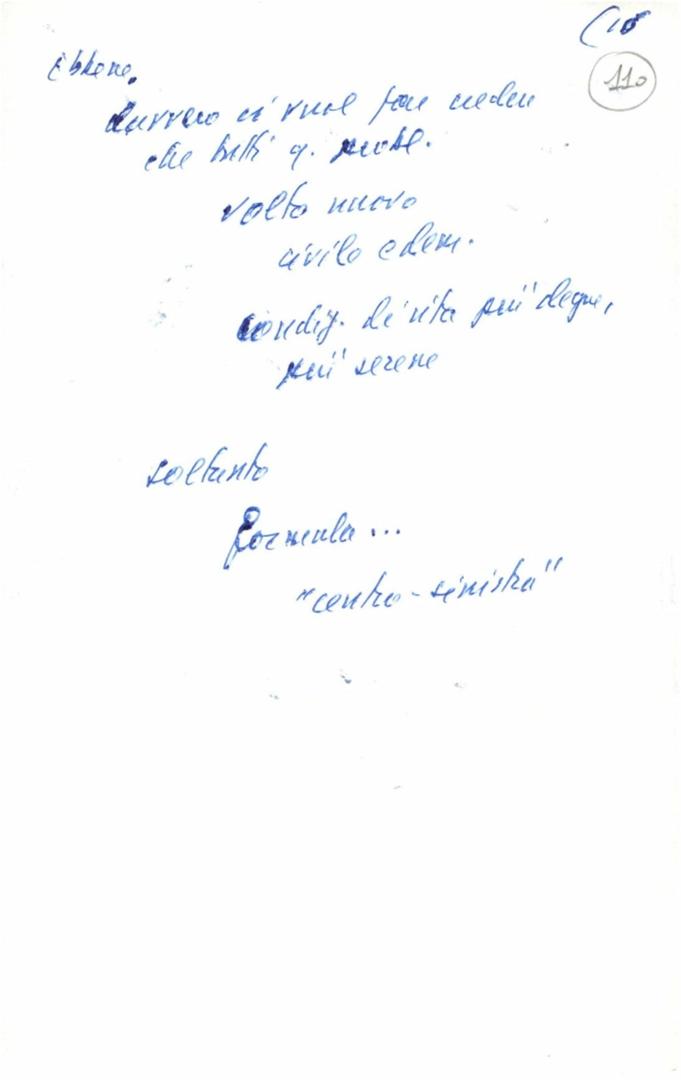 (10
110
Ebbene,
davvero ci vuol far creder
che tutti q. probl.
volto nuovo
civile e dem.
condiz. di vita più degne,
più serene
soltanto
formula...
"centro-sinistra"